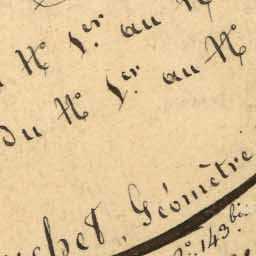 N° 1er au N°
du N° 1er au N°
Géomètre
N° 143 bis